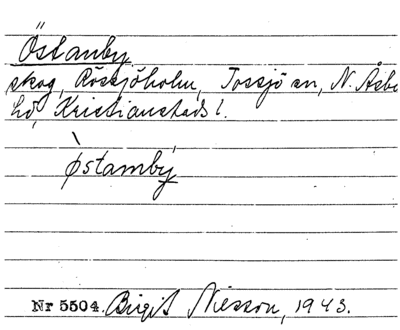 Östanby
skog, Rössjöholm, Tossjö sn, N. Åsbo
hd, Kristianstads l.
østamby
Nr 5504. Birgit Nilsson, 1943.